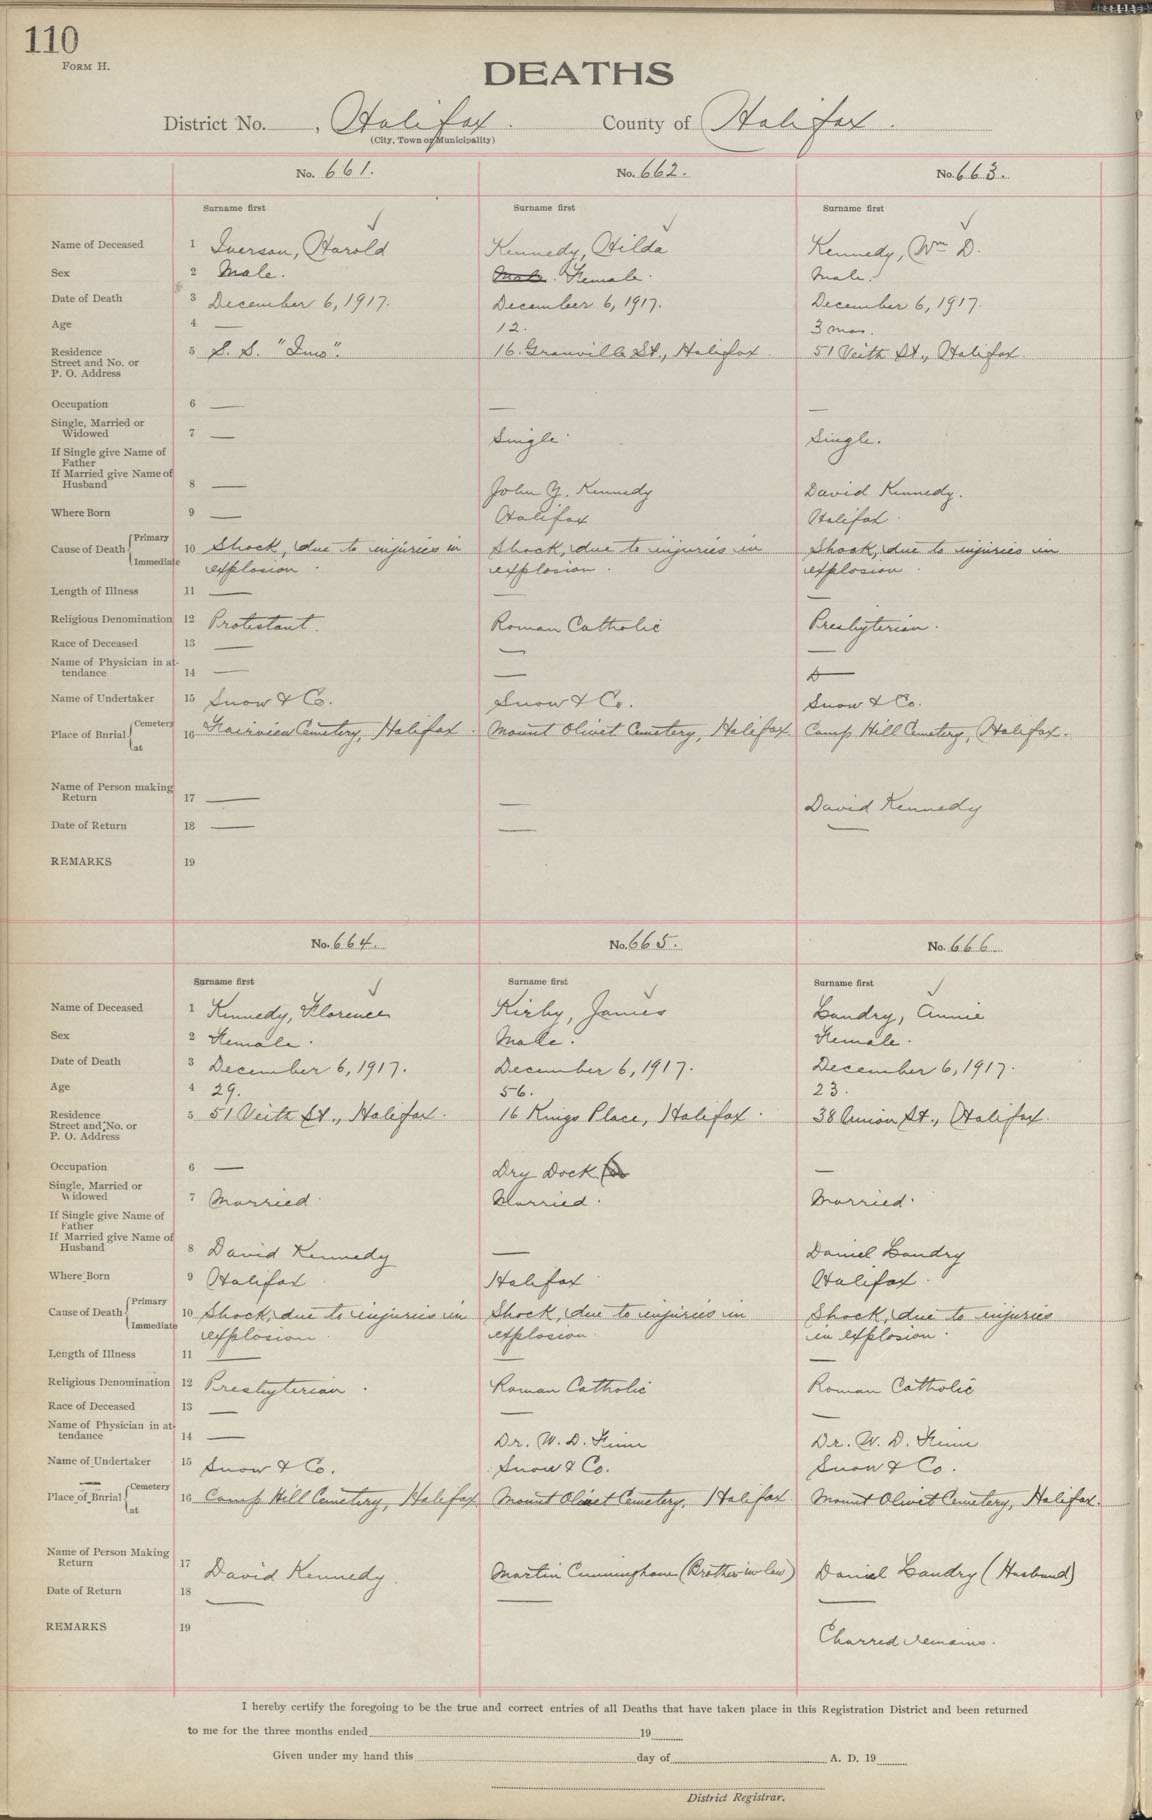 110
FORM H.
DEATHS
District No. , Halifax. County of Halifax.
(City, Town or Municipality)
No. 661. No. 662. No. 663.
Surname first Surname first Surname first
Name of Deceased 1 Iverson, Harold Kennedy, Hilda Kennedy, Wm D.
Sex 2 Male. Male. Female. Male.
Date of Death 3 December 6, 1917. December 6, 1917. December 6, 1917.
Age 4 — 12. 3 mos.
Residence Street and No. or P. O. Address 5 S. S. "Imo". 16 Granville St., Halifax 51 Veith St., Halifax
Occupation 6 — — —
Single, Married or Widowed 7 — Single. Single.
If Single give Name of Father
If Married give Name of Husband 8 — John Y. Kennedy David Kennedy.
Where Born 9 — Halifax Halifax.
Cause of Death { Primary Immediate 10 Shock, due to injuries in Shock, due to injuries in Shock, due to injuries in
explosion. explosion. explosion.
Length of Illness 11 — — —
Religious Denomination 12 Protestant. Roman Catholic Presbyterian.
Race of Deceased 13 — — —
Name of Physician in attendance 14 — — —
Name of Undertaker 15 Snow & Co. Snow & Co. Snow & Co.
Place of Burial { Cemetery at 16 Fairview Cemetery, Halifax. Mount Olivet Cemetery, Halifax. Camp Hill Cemetery, Halifax.
Name of Person making Return 17 — — David Kennedy
Date of Return 18 — — —
REMARKS 19
No. 664. No. 665. No. 666
Surname first Surname first Surname first
Name of Deceased 1 Kennedy, Florence Kirby, James Landry, Annie
Sex 2 Female. Male. Female.
Date of Death 3 December 6, 1917. December 6, 1917. December 6, 1917.
Age 4 29. 56. 23.
Residence Street and No. or P. O. Address 5 51 Veith St., Halifax. 16 Kings Place, Halifax. 38 Union St., Halifax.
Occupation 6 — Dry Dock —
Single, Married or Widowed 7 Married Married. Married.
If Single give Name of Father
If Married give Name of Husband 8 David Kennedy — Daniel Landry
Where Born 9 Halifax Halifax Halifax.
Cause of Death { Primary Immediate 10 Shock, due to injuries in Shock, due to injuries in Shock, due to injuries
explosion. explosion. in explosion.
Length of Illness 11 — — —
Religious Denomination 12 Presbyterian. Roman Catholic Roman Catholic
Race of Deceased 13 — — —
Name of Physician in attendance 14 — Dr. W. D. Finn Dr. W. D. Finn
Name of Undertaker 15 Snow & Co. Snow & Co. Snow & Co.
Place of Burial { Cemetery at 16 Camp Hill Cemetery, Halifax Mount Olivet Cemetery, Halifax. Mount Olivet Cemetery, Halifax.
Name of Person Making Return 17 David Kennedy Martin Cunningham (Brother-in-law) Daniel Landry (Husband)
Date of Return 18 — — —
REMARKS 19 Charred remains.
I hereby certify the foregoing to be the true and correct entries of all Deaths that have taken place in this Registration District and been returned
to me for the three months ended 19
Given under my hand this day of A. D. 19
District Registrar.